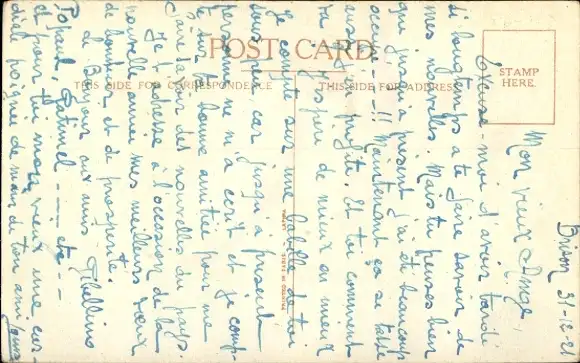 POST CARD
THIS SIDE FOR CORRESPONDENCE
THIS SIDE FOR ADDRESS
STAMP
HERE.
PRINTED IN PARIS
31-12-21
Mon vieux Ange,
Excuse-moi d'avoir tardé
si longtemps à te faire savoir de
mes nouvelles. Mais tu penses bien
que jusqu'à présent j'ai été beaucoup
occupé --!! Maintenant ça se tasse
aussi j'en profite. Et toi comment
va. J'espère de mieux en mieux
Je compte sur une babille de toi
sous peu car jusqu'à présent
personne ne m'a écrit et je comp-
te sur ta bonne amitié pour me
faire avoir des nouvelles du pays.
Je t'adresse à l'occasion de la
nouvelle année mes meilleurs vœux
de bonheur et de prospérité.
le Bonjour aux amis
etc --
et pour toi mon vieux une cor
diale poignée de main de ton ami